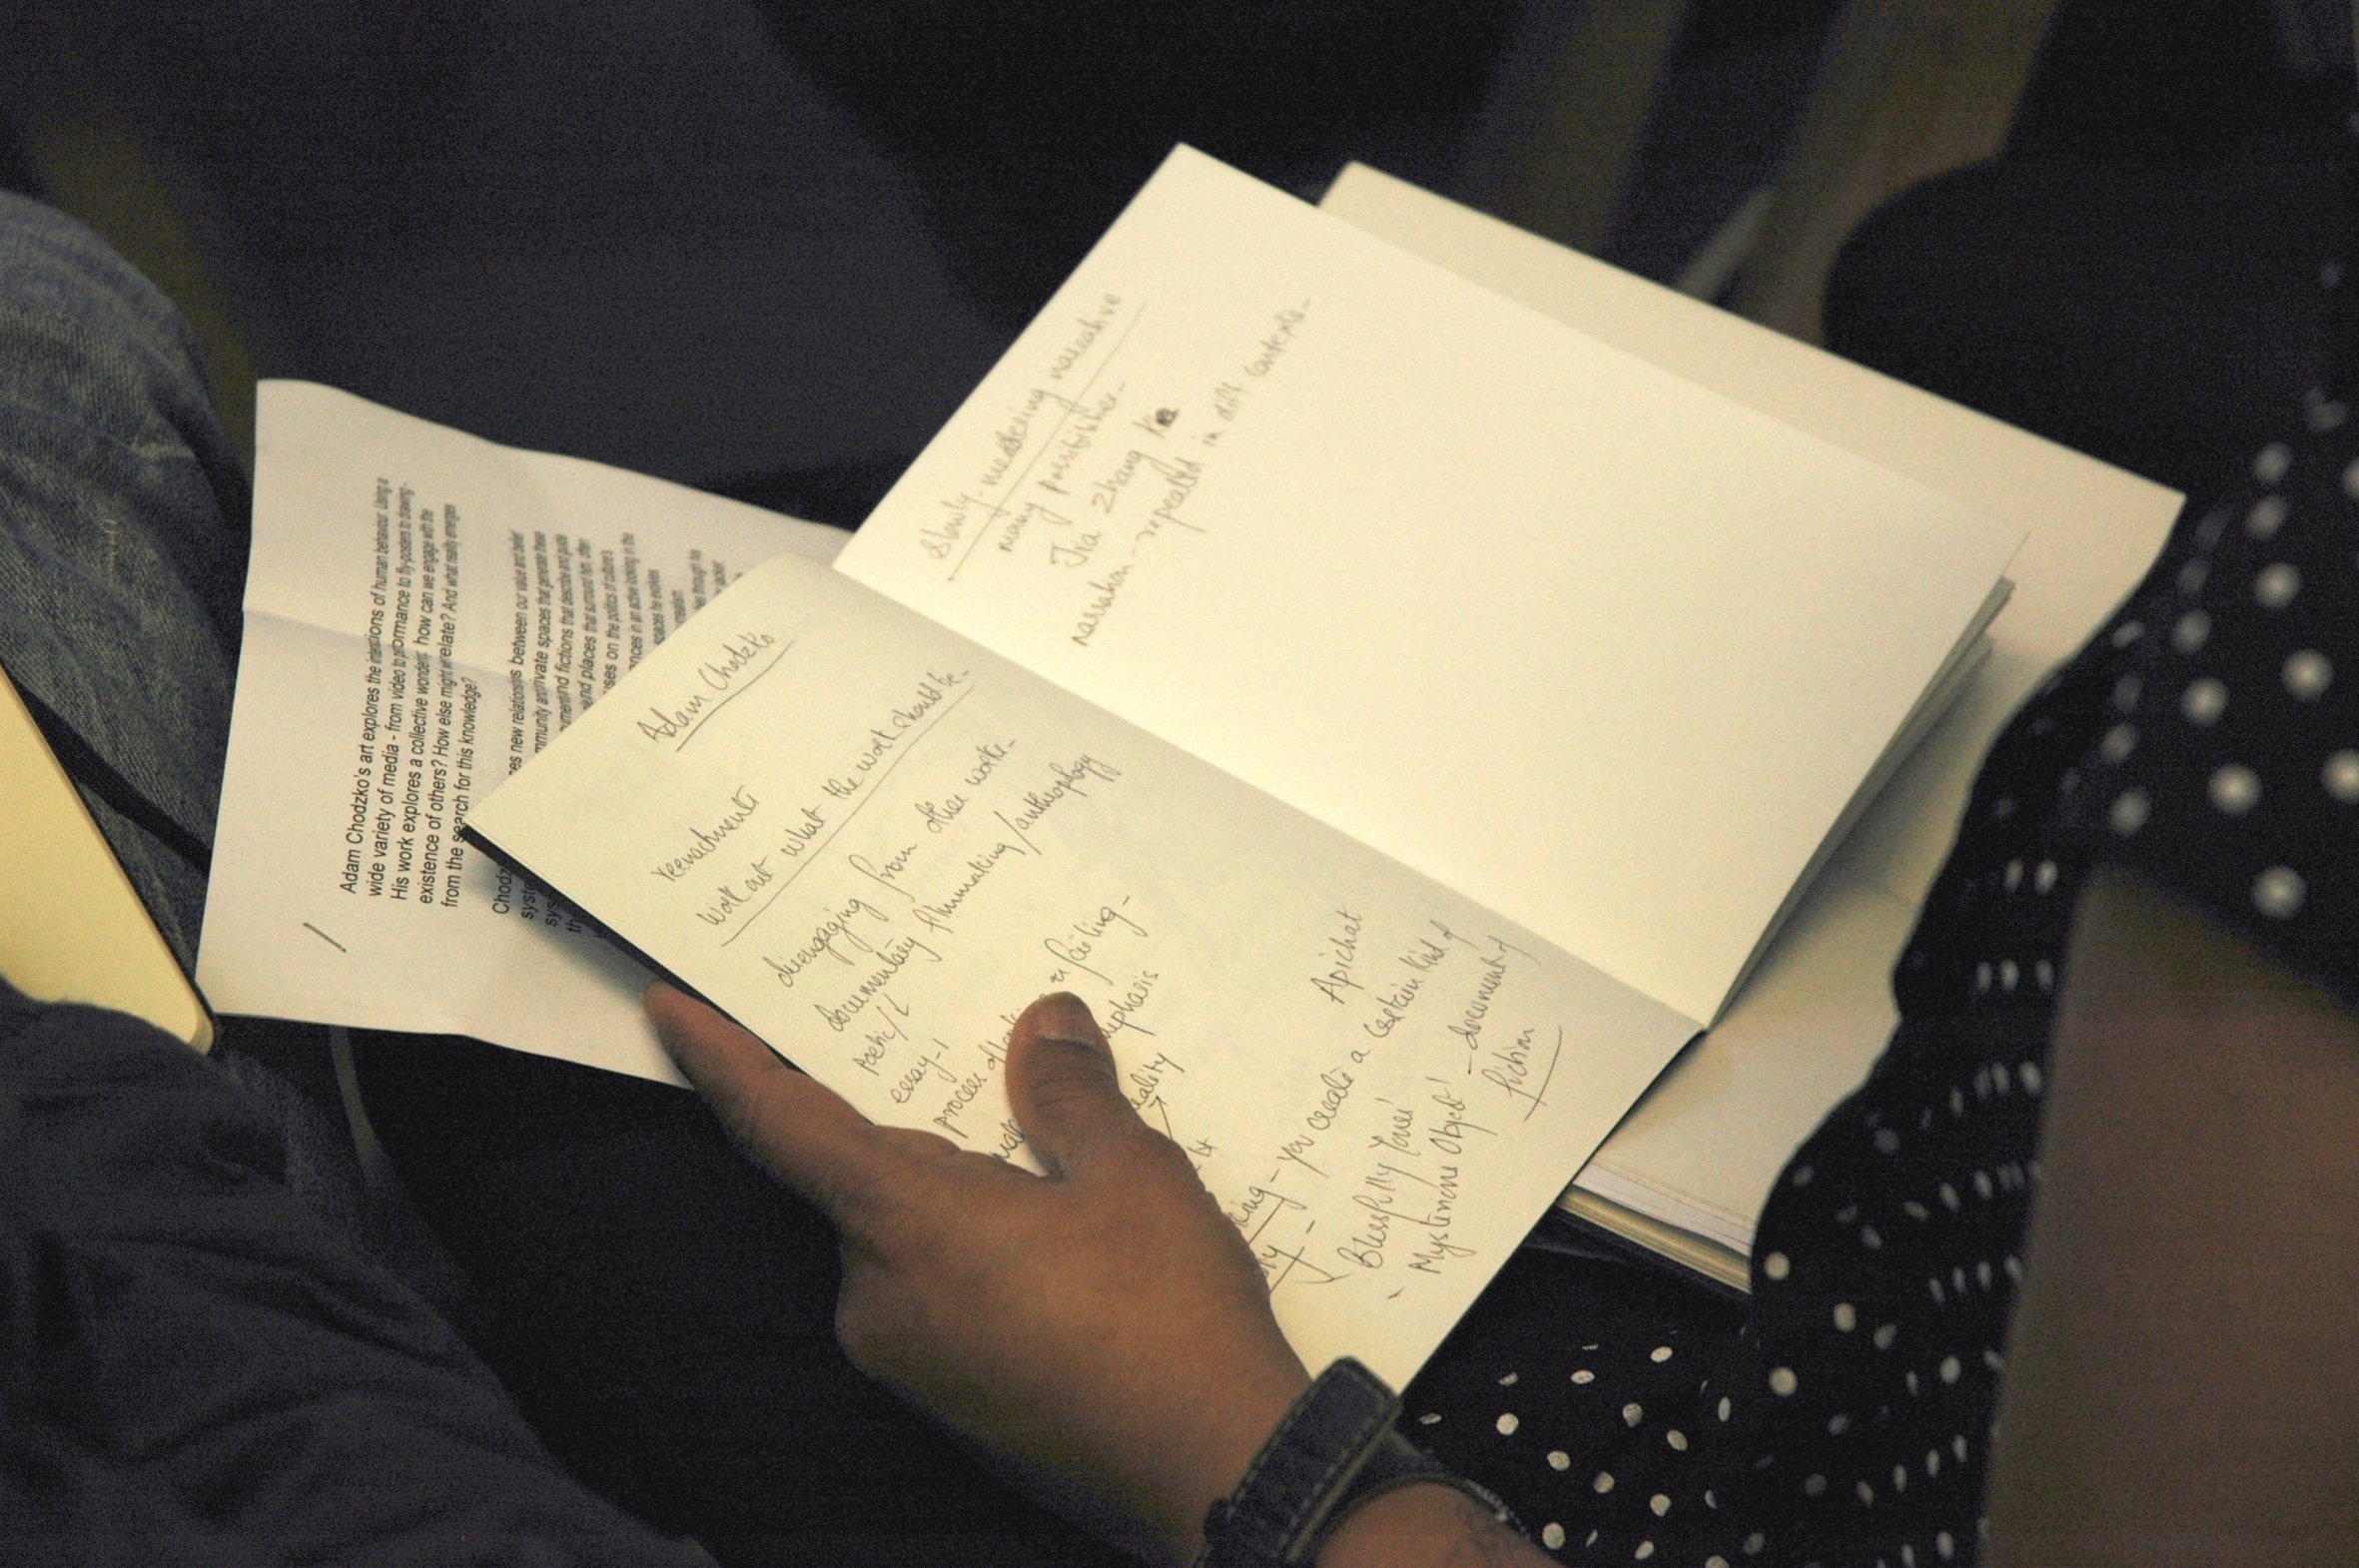 Adam Chodzko's art explores the interactions of human behaviour. Using a
wide variety of media - from video to performance to fly-posters to drawing -
His work explores a collective wonder: how can we engage with the
existence of others? How else might we relate? And what really emerges
from the search for this knowledge?
es new relationships between our value and belief
mmunity and private spaces that generate these
and fictions that describe and guide
and places that surround him, often
ses on the politics of culture's
nces in an active looking in the
spaces he evokes
Adam Chodzko
reenactments
Work out what the work should be-
disengaging from other work-
documentary filmmaking/anthropology
Poetic/
essay-
process of
failing-
emphasis
reality
Apichat
- you create a certain kind of
Blissfully Yours'
Mysterious Object' - document of
fiction
Slowly-meandering narrative
many possibilities-
Jia Zhang Ke
narration--repeated in diff contexts-